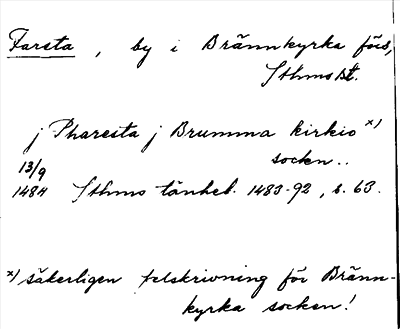 Farsta, by i Brännkyrka förs,
Sthms lt.
j Pharesta j Brumma kirkio x)
socken..
13/9
1484 Sthms tänkeb. 1483-92, s. 63.
x) säkerligen felskrivning för Bränn-
kyrka socken!